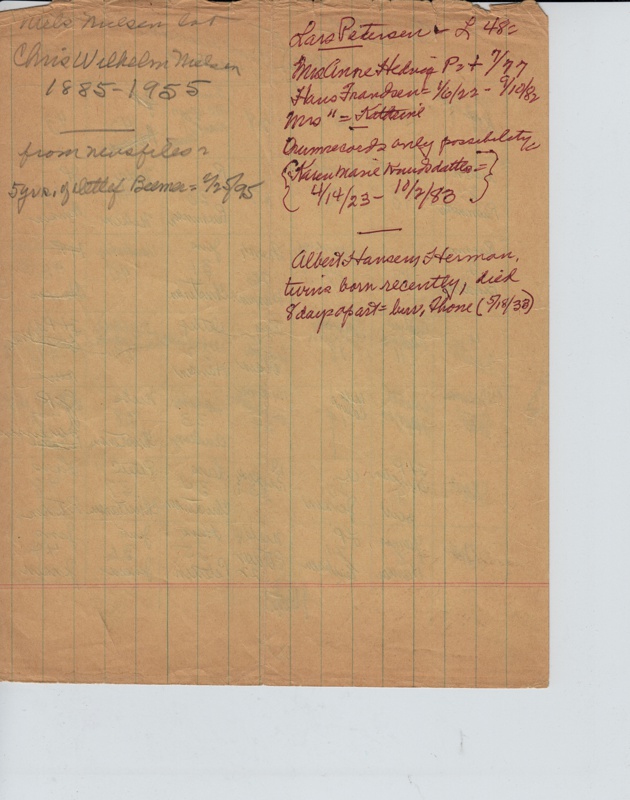 Niels Nielsen lot
Chris Wilhelm Nielsen
1885-1955
from newsfiles =
5 yrs. of Detlef = 2/25/95
Lars Petersen - L 48 =
Mrs Anne Hedvig P = + 7/77
Hans Frandsen = 1/6/22 - 9/10/82
Mrs " = Katherine
only possibility
{ Karen Marie Knudsdatter =
4/14/23 - 10/2/83 }
Albert Hansens, Herman,
twins born recently, died
8 days apart = bur. (5/18/38)